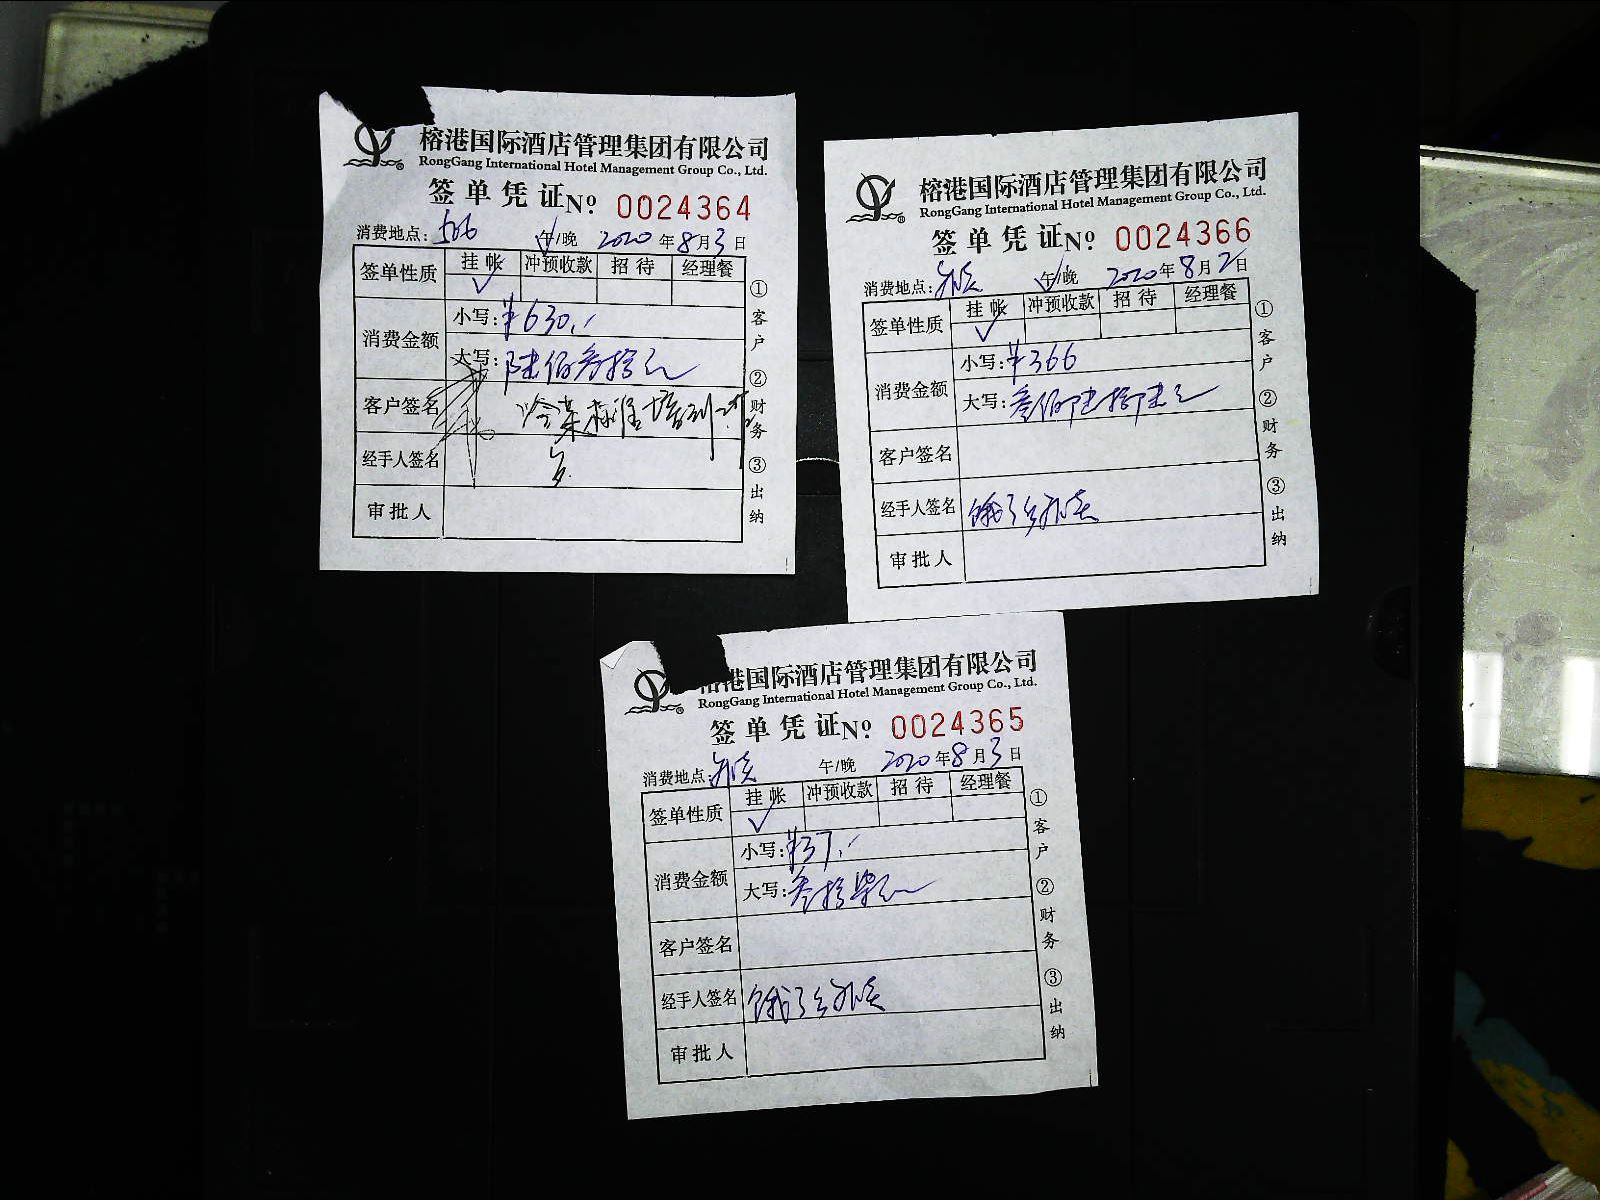 榕港国际酒店管理集团有限公司
RongGang International Hotel Management Group Co., Ltd.
签单凭证 Nº 0024364
消费地点: 566 午/晚 2020年8月3日
签单性质 挂帐 冲预收款 招待 经理餐
✓
消费金额 小写: ¥630.-
大写: 陆佰叁拾元
客户签名 冷菜标准培训
经手人签名
审批人
①客户 ②财务 ③出纳
榕港国际酒店管理集团有限公司
RongGang International Hotel Management Group Co., Ltd.
签单凭证 Nº 0024366
消费地点: 外卖 午/晚 2020年8月2日
签单性质 挂帐 冲预收款 招待 经理餐
✓
消费金额 小写: ¥366
大写: 叁佰陆拾陆元
客户签名
经手人签名 饿了么外卖
审批人
①客户 ②财务 ③出纳
港国际酒店管理集团有限公司
RongGang International Hotel Management Group Co., Ltd.
签单凭证 Nº 0024365
消费地点: 外卖 午/晚 2020年8月3日
签单性质 挂帐 冲预收款 招待 经理餐
✓
消费金额 小写: ¥37.-
大写: 叁拾柒元
客户签名
经手人签名 饿了么外卖
审批人
①客户 ②财务 ③出纳